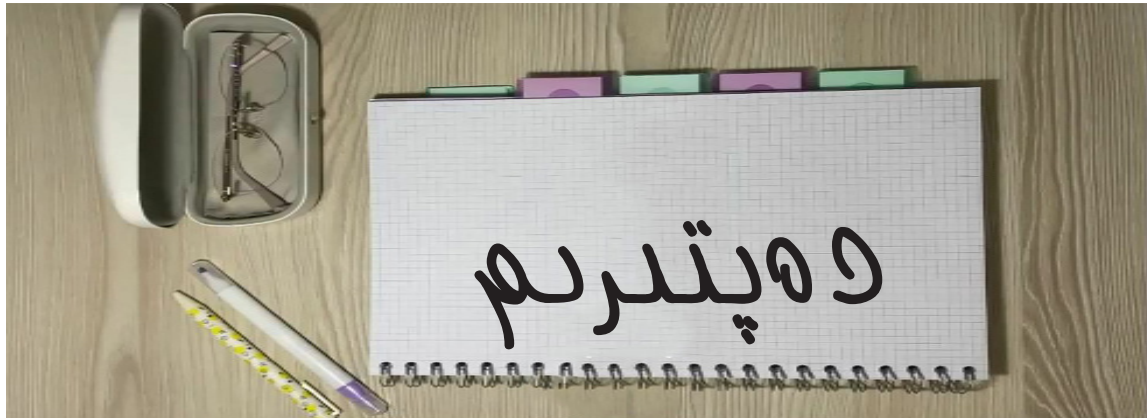 دەپتىرىم